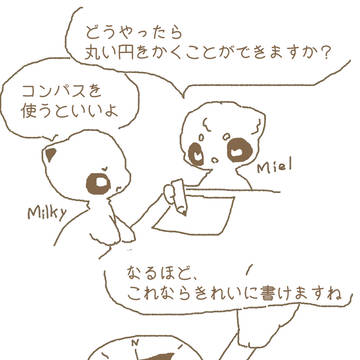 どうやったら
丸い円をかくことができますか？
コンパスを
使うといいよ
Miel
Milky
なるほど、
これならきれいに書けますね
N